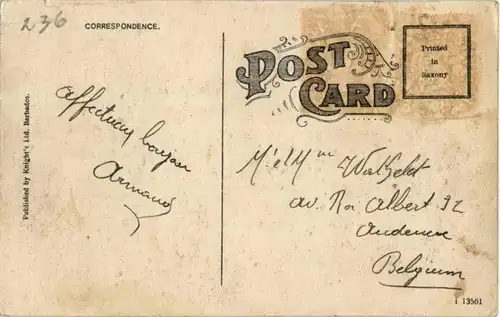 236
CORRESPONDENCE.
POST CARD
Printed
in
Saxony
Affectueux bonjour
Armand
Published by Knight's Ltd. Barbados.
M. et Mme
av. Roi Albert 32
Andenne
Belgium
1 13561